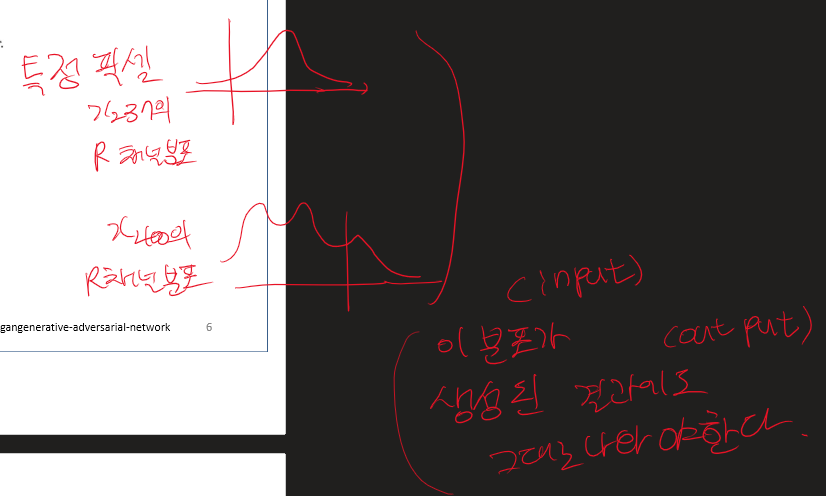 특정 픽셀
x237의
R 채널분포
x2400의
R채널분포
gangenerative-adversarial-network 6
(input)
이 분포가 (output)
생성된 결과에도
그대로 나와야한다.